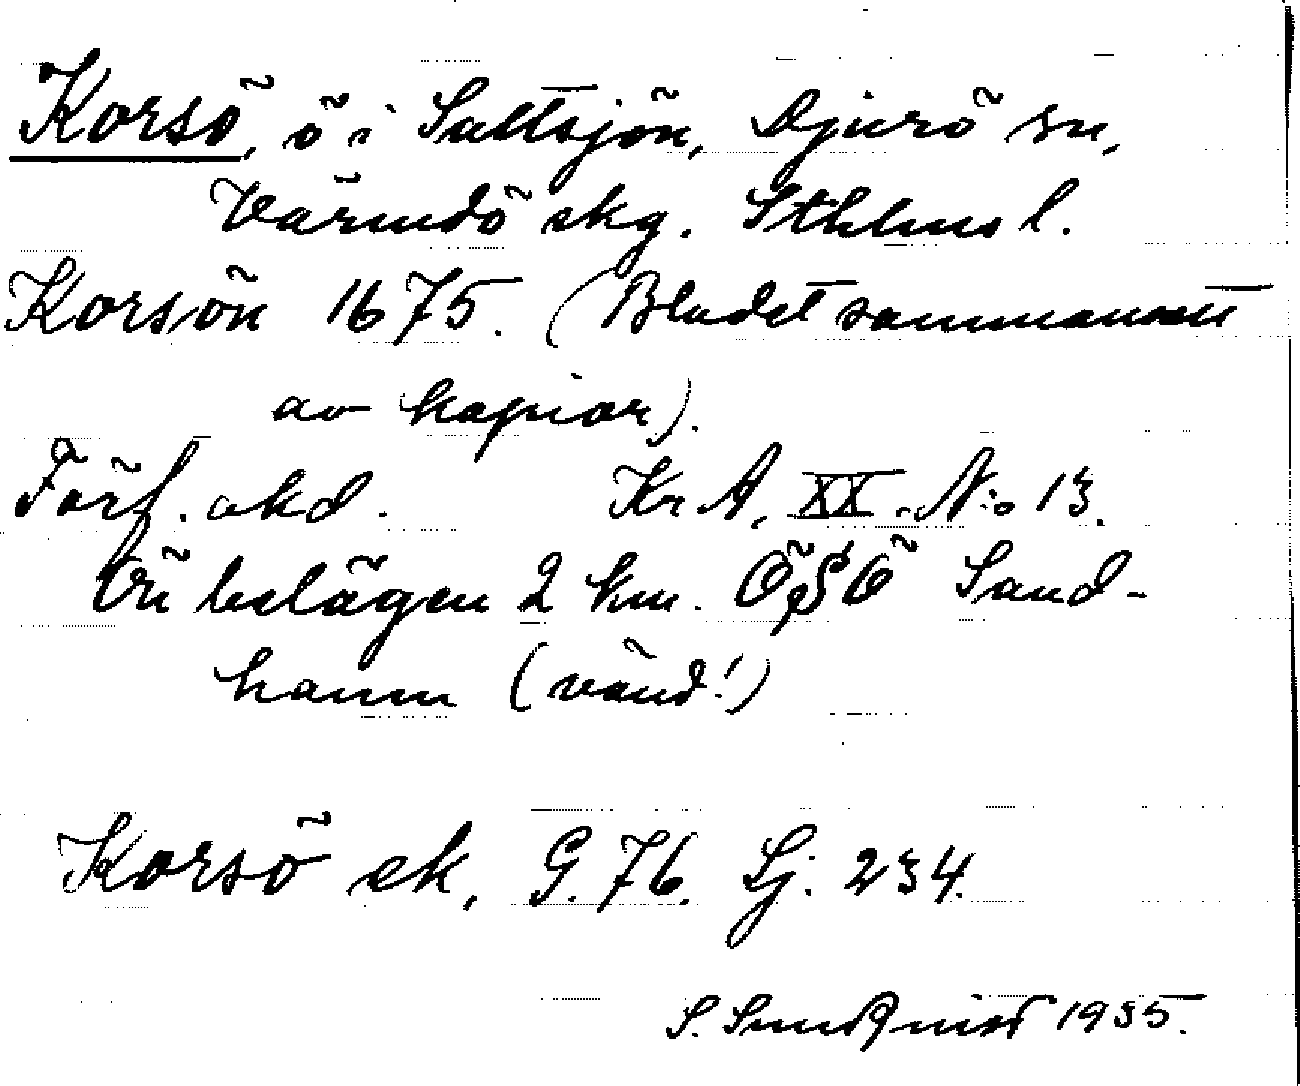 Korsö, ö i Saltsjön, Djurö sn,
Värmdö skg. Sthlms l.
Korsön 1675. (Bladet sammansatt
av kopior).
Förf. okd. Kr A. XX. N:o 13.
Ön belägen 2 km. ÖSÖ Sand-
hamn (vänd!)
Korsö ek. G. 76. Sj. 234.
S. Sundqvist 1935.